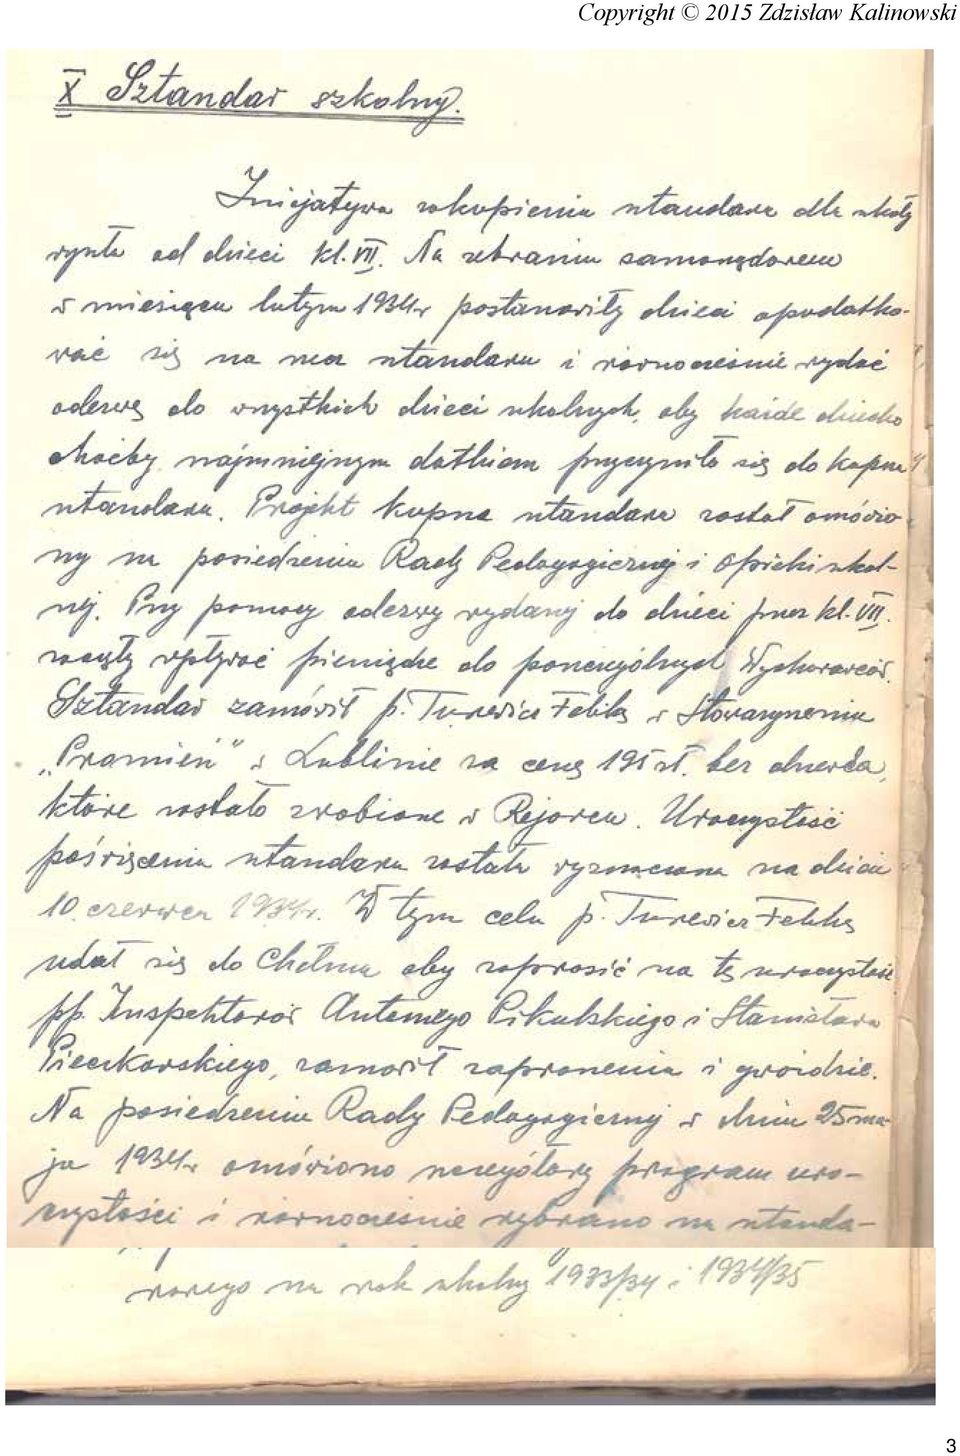 Copyright © 2015 Zdzisław Kalinowski
X Sztandar szkolny.
Inicjatywa zakupienia sztandaru dla szkoły
wyszła od dzieci kl. VII. Na zebraniu samorządowem
w miesiącu lutym 1934 r postanowiły dzieci opodatko-
wać się na rzecz sztandaru i równocześnie wydać
odezwę do wszystkich dzieci szkolnych, aby każde dziecko
choćby najmniejszym datkiem przyczyniło się do kupna
sztandaru. Projekt kupna sztandaru został omówio-
ny na posiedzeniu Rady Pedagogicznej i Opieki szkol-
nej. Przy pomocy odezwy wydanej do dzieci przez kl. VII.
zaczęły wpływać pieniądze do poszczególnych Wychowawców.
Sztandar zamówił p. Turewicz Feliks w Stowarzyszeniu
„Promień" w Lublinie za cenę 195 zł. bez drzewca,
które zostało zrobione w Rejowcu. Uroczystość
poświęcenia sztandaru została wyznaczona na dzień
10. czerwca 1934 r. W tym celu p. Turewicz Feliks
udał się do Chełma aby zaprosić na tę uroczystość
pp. Inspektorów Antoniego Pikulskiego i Stanisława
Pieczkowskiego, zamówił zaproszenia i gwoździe.
Na posiedzeniu Rady Pedagogicznej w dniu 25 ma-
ja 1934 r omówiono szczegółowy program uro-
czystości i równocześnie wybrano na sztanda-
rowego na rok szkolny 1933/34 i 1934/35
3